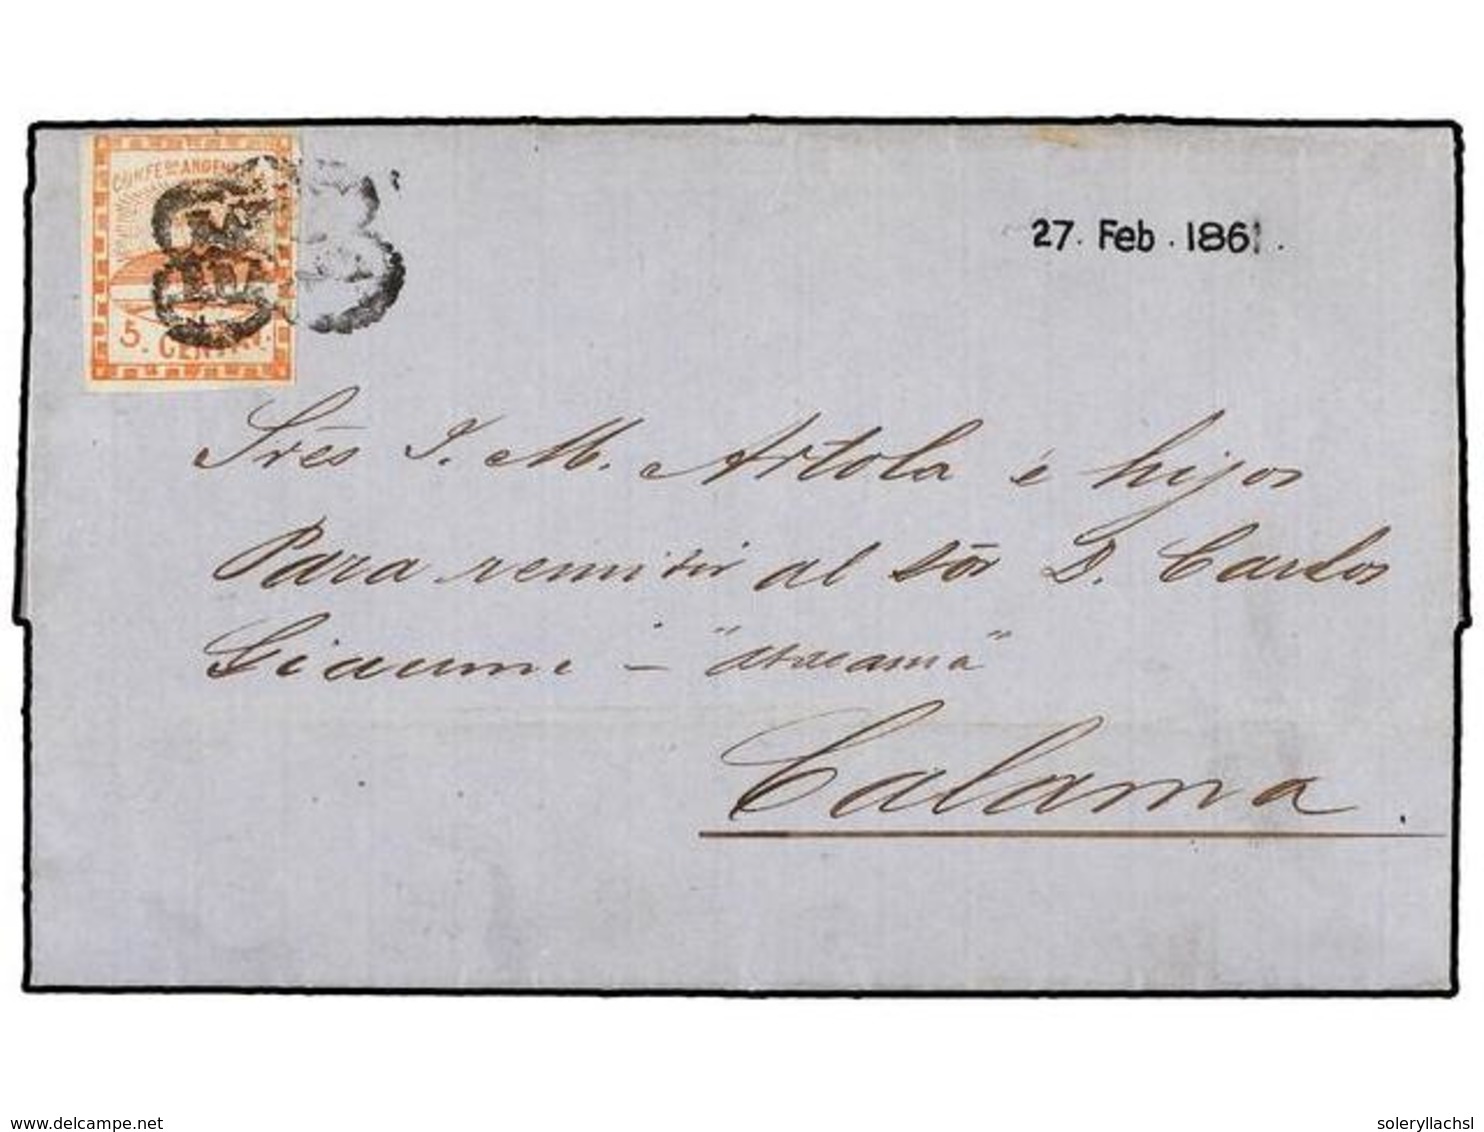 CONFEON ARGENT
5. CENTAV.
27. Feb. 1861.
Srēs J. M. Artola é hijos
Para remitir al Sōr D. Carlos
Giaumi — "Atacama"
Calama.
delcampe.net
soleryllachsl